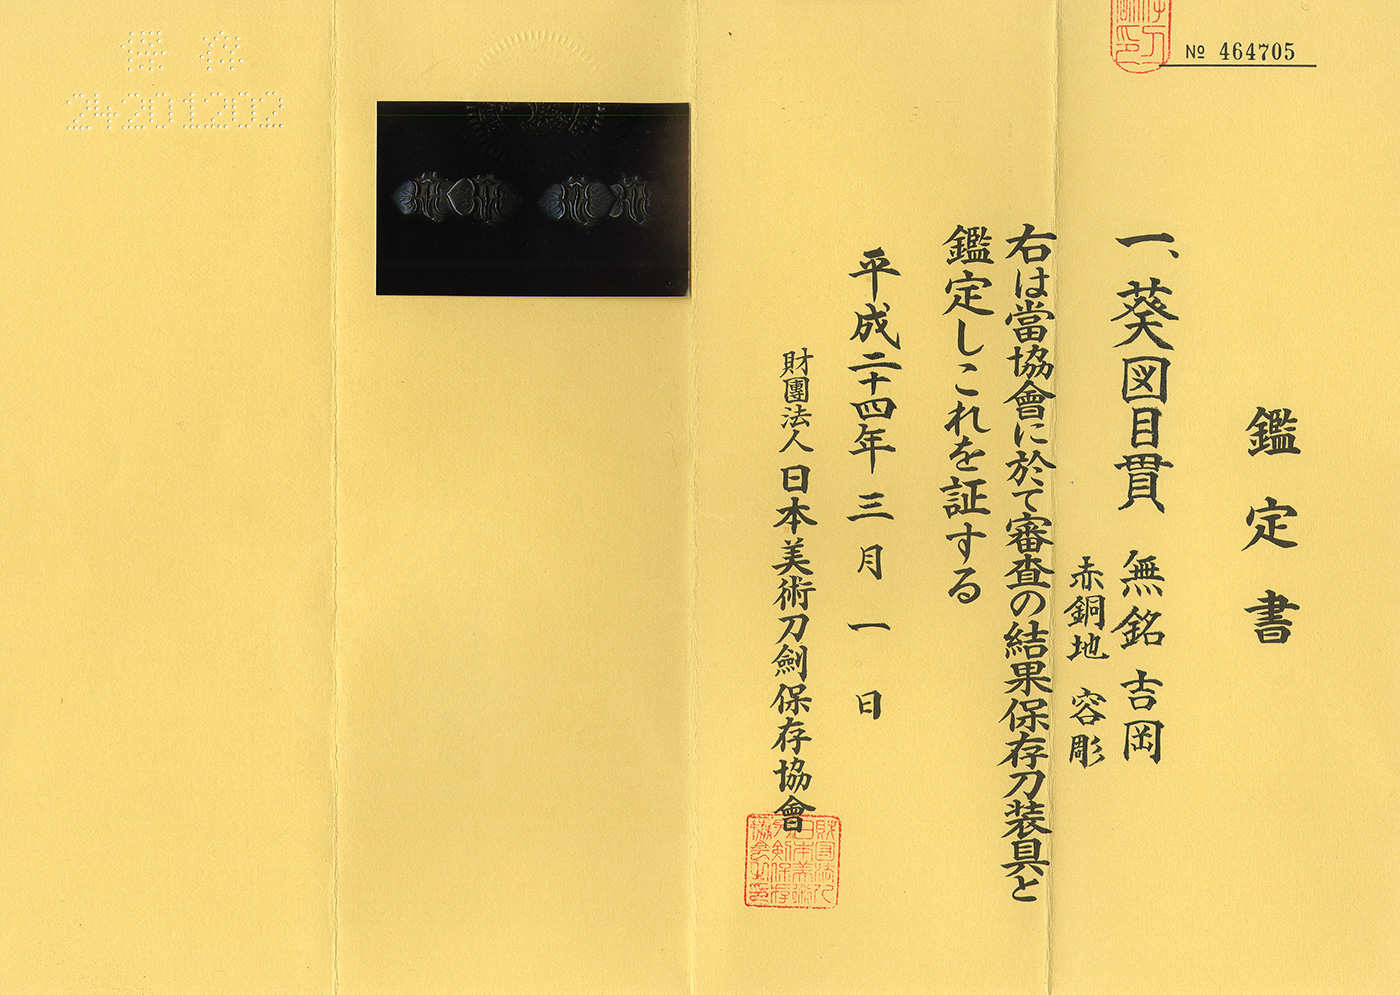 No 464705
鑑定書
一、葵図目貫 無銘 吉岡
赤銅地 容彫
右は當協會に於て審査の結果保存刀装具と
鑑定しこれを証する
平成二十四年三月一日
財團法人日本美術刀劍保存協會
保存
24201202